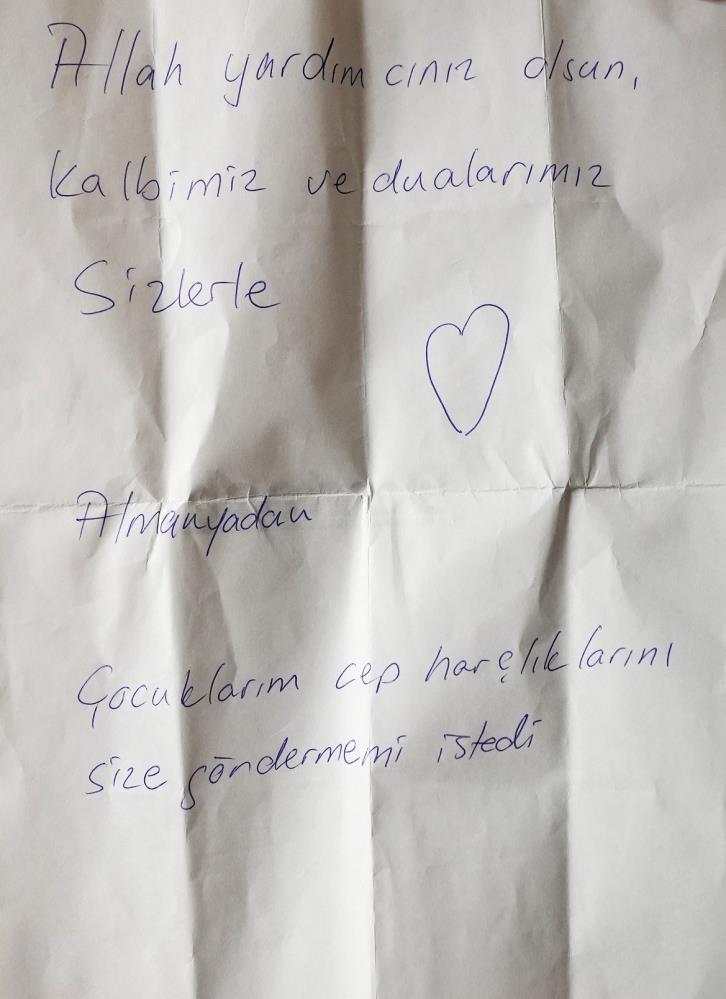 Allah yardımcınız olsun,
Kalbimiz ve dualarımız
Sizlerle
Almanyadan
Çocuklarım cep harçlıklarını
size göndermemi istedi